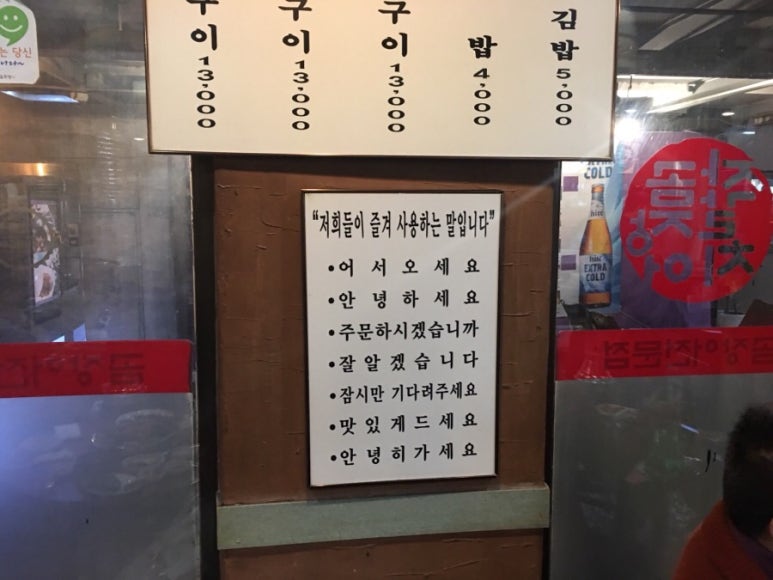 구이 13,000
구이 13,000
구이 13,000
밥 4,000
김밥 5,000
는 당신
"저희들이 즐겨 사용하는 말입니다"
•어서오세요
•안녕하세요
•주문하시겠습니까
•잘알겠습니다
•잠시만 기다려주세요
•맛있게드세요
•안녕히가세요
EXTRA
COLD
hite
EXTRA
COLD
곰장어전문점